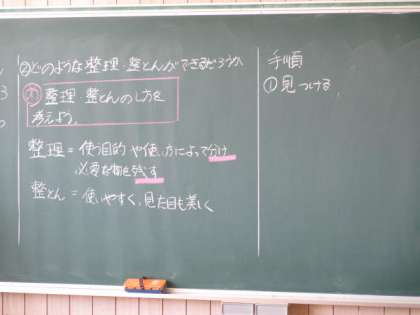 ②どのような整理・整とんができるだろうか
整理・整とんのし方を
考えよう。
整理=使う目的や使い方によって分け
必要な物を残す
整とん=使いやすく、見た目も美しく
手順
①見つける。